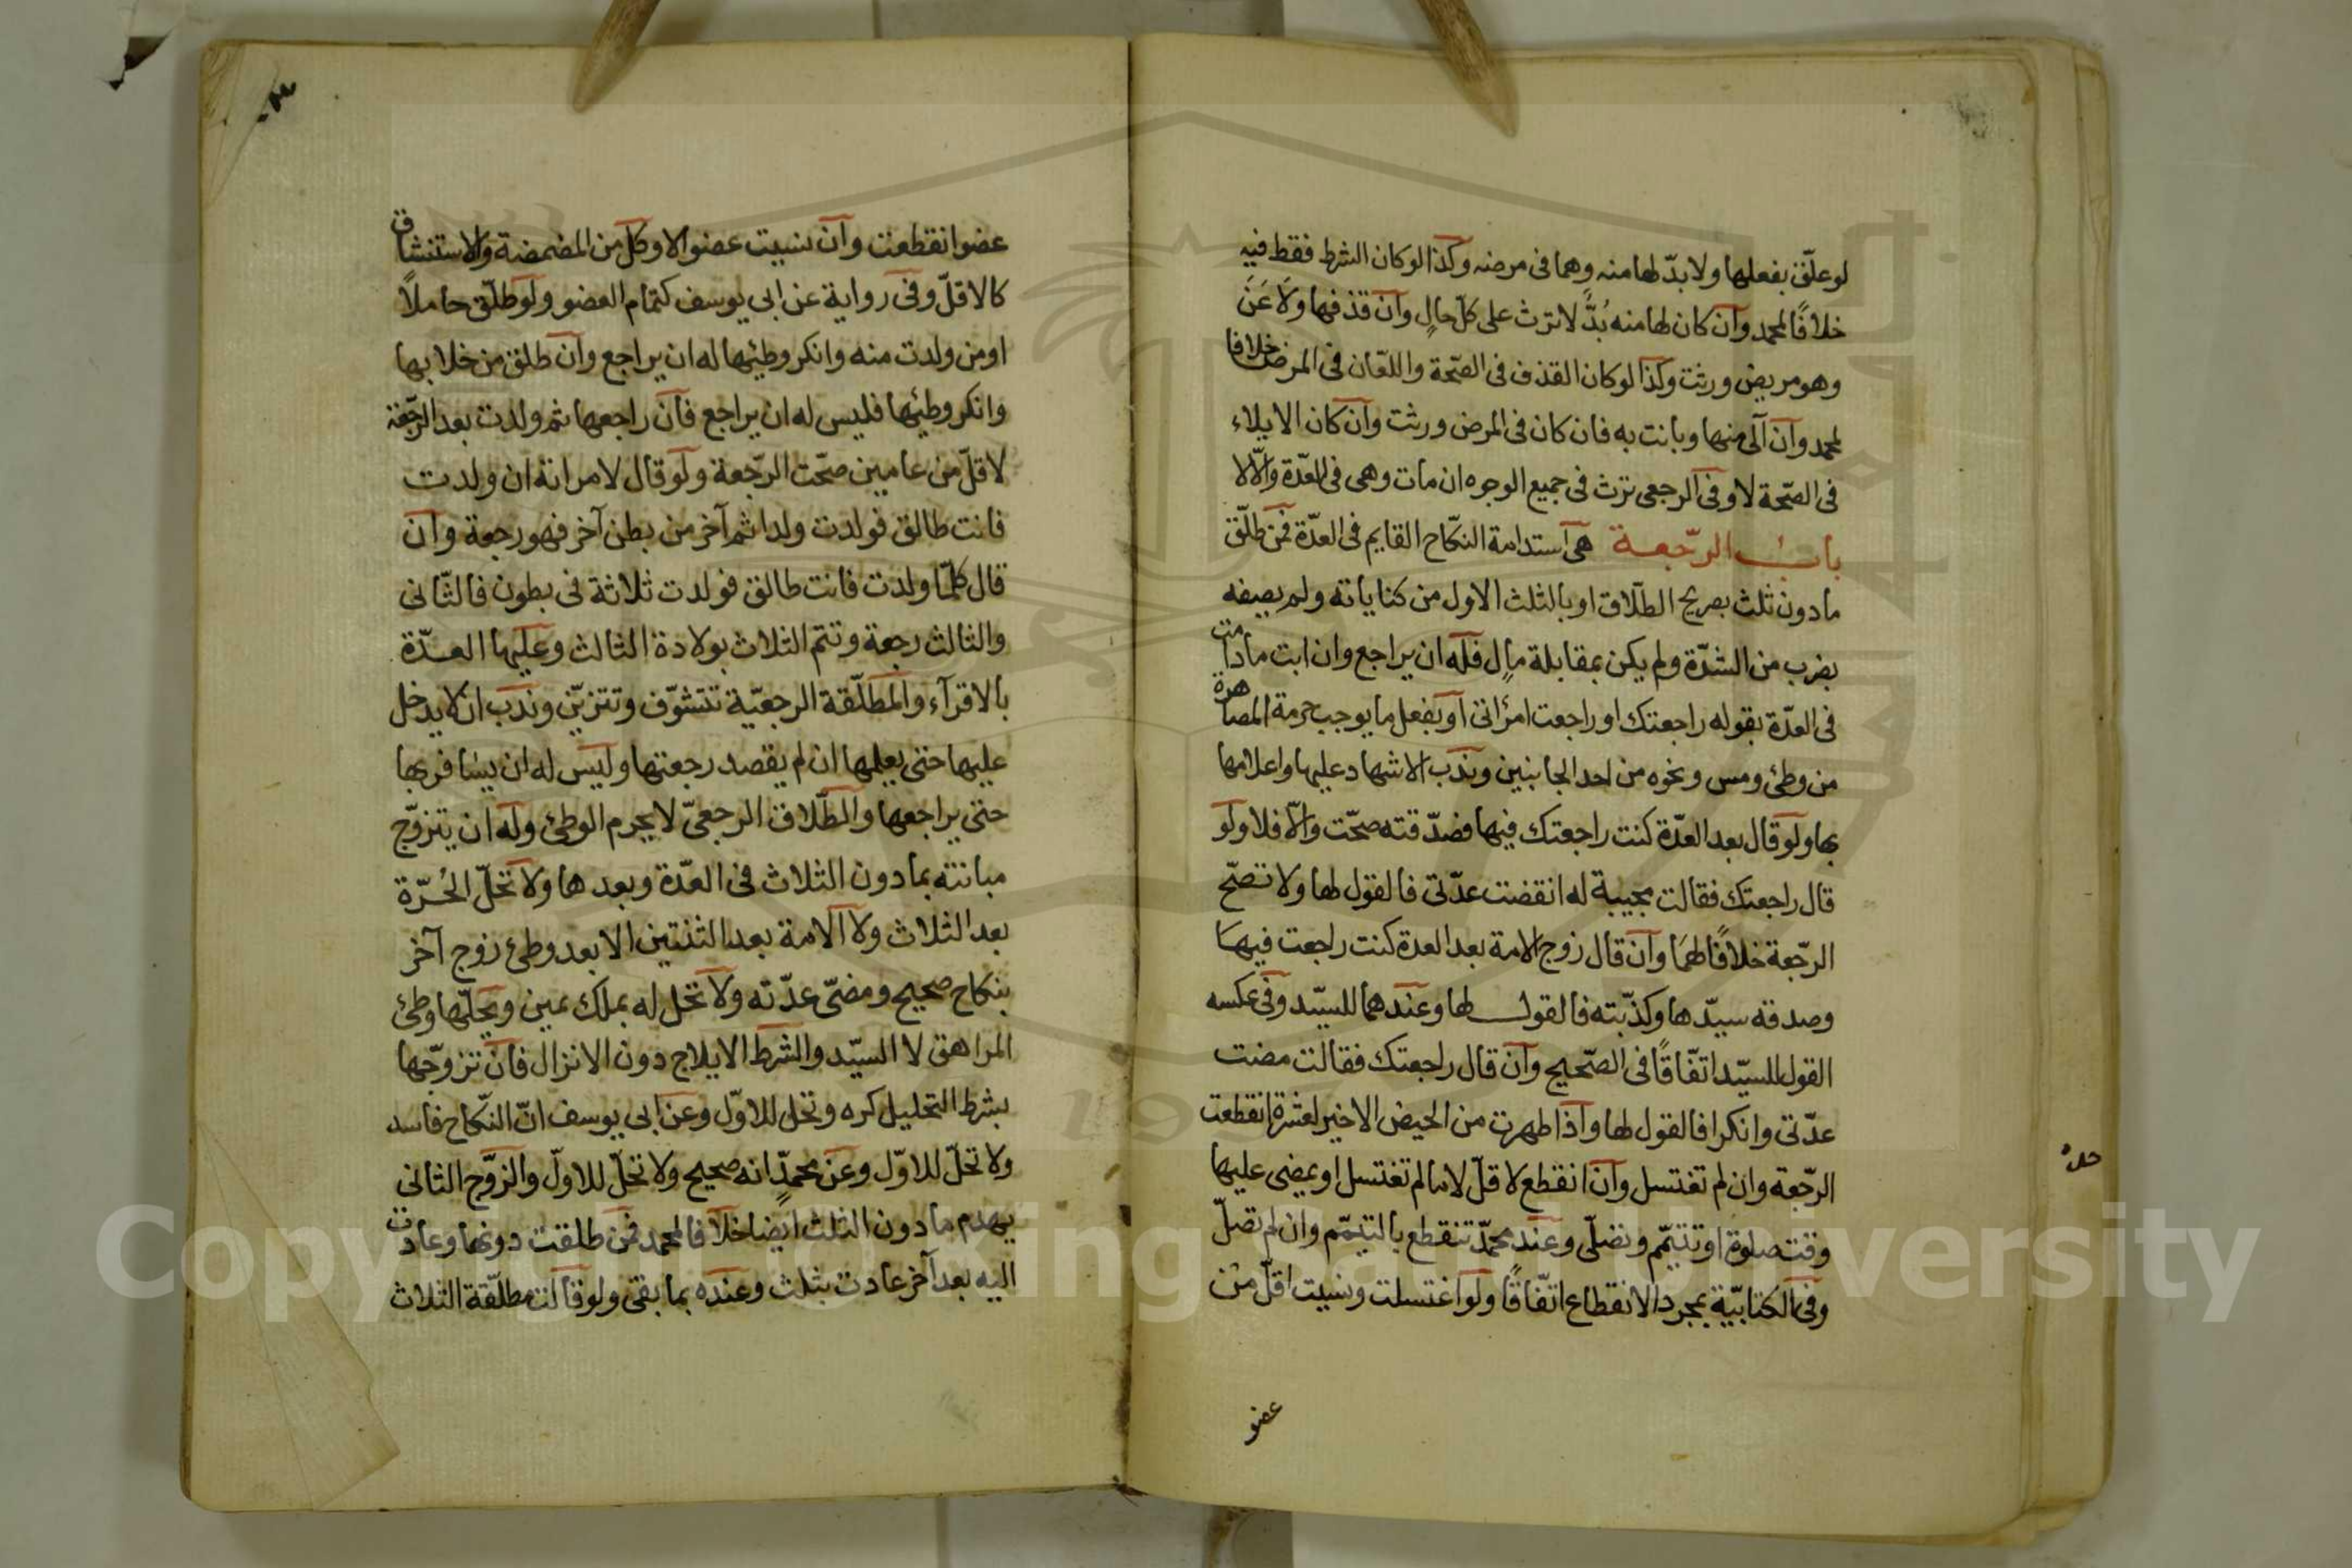 لو علّق بفعلها ولا بدّ لها منه وهما فى مرضه وكذا لو كان الشرط فقط فيه
خلافًا لمحمد وان كان لها منه بُدٌّ لا ترث على كلّ حالٍ وان قذفها ولَاعَنَ
وهو مريض ورثت وكذا لو كان القذف فى الصّحة واللعّان فى المرض خلافا
لمحمد وان آلى منها وبانت به فان كان فى المرض ورثت وان كان الايلاء
فى الصّحة لا وفى الرجعى ترث فى جميع الوجوه ان مات وهى فى العدّة والّا لا
باب الرّجعة هى استدامة النكّاح القايم فى العدّة فمن طلّق
ما دون ثلث بصريح الطلّاق او بالثلث الاول من كناياته ولم يصفه
بضرب من الشدّة ولم يكن بمقابلة مالٍ فله ان يراجع وان ابت ما دامت
فى العدّة بقوله راجعتك او راجعت امرأتى او بفعل ما يوجب حرمة المصاهرة
من وطئ ومس ونحوه من احد الجانبين وندب الاشهاد عليها واعلامها
بها ولو قال بعد العدّة كنت راجعتك فيها فصدّقته صحّت والّا فلا ولو
قال راجعتك فقالت مجيبة له انقضت عدّتى فالقول لها ولا تصحّ
الرّجعة خلافًا لهمَا وان قال زوج الامة بعد العدة كنت راجعت فيهَا
وصدقه سيّدها وكذّبته فالقول لها وعندهما للسيّد وفى عكسه
القول للسيّد اتّفاقًا فى الصّحيح وان قال راجعتك فقالت مضت
عدّتى وانكرا فالقول لها واذا طهرت من الحيض الاخير لعشرة انقطعت
الرّجعة وان لم تغتسل وان انقطع لاقلّ لا ما لم تغتسل او يمضى عليها
وقت صلوة او تتيمّم وتصلّى وعند محمّد تنقطع بالتيمّم وان لم تصلّ
وفى الكتابيّة بمجرد الانقطاع اتّفاقًا ولو اغتسلت ونسيت اقلّ من
عضو
عضو انقطعت وان نسيت عضوا لا وكل من المضمضة والاستنشاق
كالاقلّ وفى رواية عن ابى يوسف كتمام العضو ولو طلّق حاملًا
او من ولدت منه وانكر وطيئها له ان يراجع وان طلق من خلا بها
وانكر وطيئها فليس له ان يراجع فان راجعها ثم ولدت بعد الرّجعة
لاقلّ من عامين صحّت الرّجعة ولو قال لامراته ان ولدت
فانت طالق فولدت ولدا ثم آخر من بطن آخر فهو رجعة وان
قال كلمّا ولدت فانت طالق فولدت ثلاثة فى بطون فالثّانى
والثالث رجعة وتتم الثلاث بولادة الثالث وعليها العدّة
بالاقرآء والمطلّقة الرجعيّة تتشوّف وتتزيّن وندب ان لا يدخل
عليها حتى يعلمها ان لم يقصد رجعتها وليس له ان يسافر بها
حتى يراجعها والطّلاق الرجعىّ لا يحرم الوطئ وله ان يتزوّج
مبانته بما دون الثلاث فى العدّة وبعدها ولا تحلّ الحُرّة
بعد الثلاث ولا الامة بعد الثنتين الا بعد وطئ زوج آخر
بنكاح صحيح ومضىّ عدّته ولا تحل له بملك يمين ويحلّها وطئ
المراهق لا السيّد والشرط الايلاج دون الانزال فان تزوّجها
بشرط التحليل كره وتحل للاوّل وعن ابى يوسف انّ النكّاح فاسد
ولا تحلّ للاوّل وعن محمدٍ انه صحيح ولا تحلّ للاولّ والزوّج الثانى
يهدم ما دون الثلث ايضا خلافا لمحمد فمن طلقت دونها وعادت
اليه بعد آخر عادت بثلث وعنده بما بقى ولو قالت مطلّقة الثلاث
Copyright © King Saud University